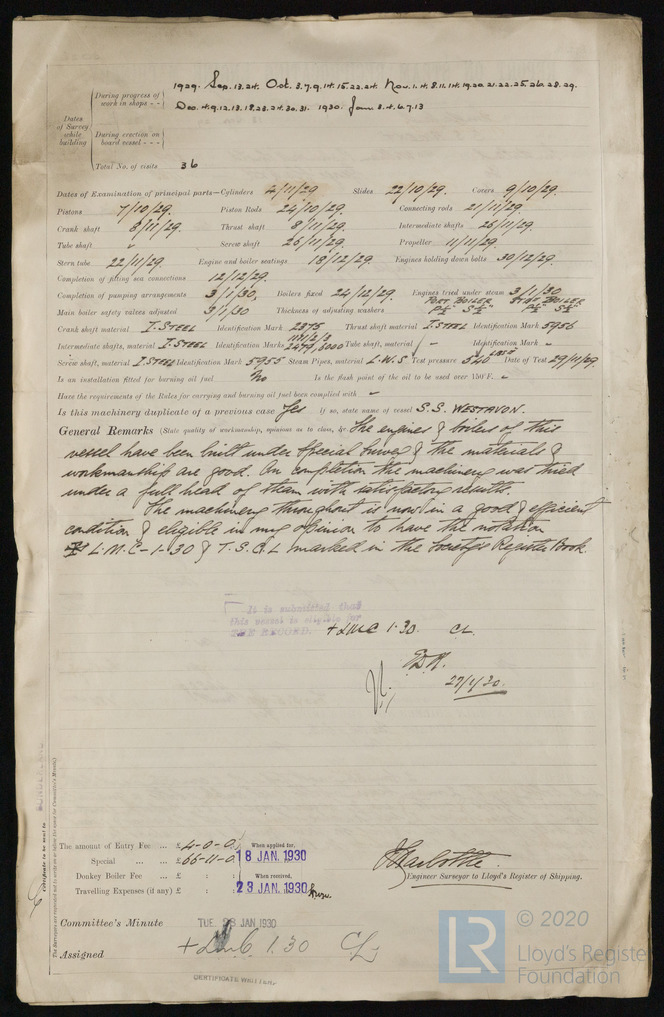 1929. Sep. 13. 24. Oct. 3. 7. 9. 14. 15. 22. 24. Nov. 1. 4. 8. 11. 14. 19. 20. 21. 22. 25. 26. 28. 29.
During progress of work in shops - -
Dec. 4. 9. 12. 13. 18. 23. 24. 30. 31. 1930. Jan. 3. 4. 6. 7. 13
Dates of Survey while building
During erection on board vessel - - -
Total No. of visits 36
Dates of Examination of principal parts—Cylinders 4/11/29 Slides 22/10/29. Covers 9/10/29.
Pistons 7/10/29. Piston Rods 24/10/29. Connecting rods 21/11/29.
Crank shaft 8/11/29. Thrust shaft 8/11/29. Intermediate shafts 26/11/29.
Tube shaft Screw shaft 26/11/29. Propeller 11/11/29.
Stern tube 22/11/29. Engine and boiler seatings 18/12/29. Engines holding down bolts 30/12/29.
Completion of fitting sea connections 12/12/29.
Completion of pumping arrangements 3/1/30. Boilers fixed 24/12/29. Engines tried under steam 3/1/30
Main boiler safety valves adjusted 3/1/30 Thickness of adjusting washers PORT BOILER STBD BOILER
Crank shaft material I. STEEL Identification Mark 2375 Thrust shaft material I. STEEL Identification Mark 5956
Intermediate shafts, material I. STEEL Identification Marks Tube shaft, material - Identification Mark -
Screw shaft, material I. STEEL Identification Mark 5955 Steam Pipes, material L.W.S Test pressure 540 LBS Date of Test 29/11/29.
Is an installation fitted for burning oil fuel No Is the flash point of the oil to be used over 150°F. -
Have the requirements of the Rules for carrying and burning oil fuel been complied with -
Is this machinery duplicate of a previous case Yes If so, state name of vessel S.S. WESTAVON.
General Remarks (State quality of workmanship, opinions as to class, &c. The engines & boilers of this
vessel have been built under Special Survey & the materials &
workmanship are good. On completion the machinery was tried
under a full head of steam with satisfactory results.
The machinery throughout is now in a good & efficient
condition & eligible in my opinion to have the notation
L.M.C-1-30 & T.S.C.L marked in the Society's Register Book
It is submitted that
this vessel is eligible for
THE RECORD. + LMC 1·30. CL.
27/1/30.
The amount of Entry Fee ... £ 4-0-0 When applied for,
Special ... ... £ 66-11-0 18 JAN. 1930
Donkey Boiler Fee ... £ : : When received,
Travelling Expenses (if any) £ : : 23 JAN. 1930
Engineer Surveyor to Lloyd's Register of Shipping.
Committee's Minute TUE. 28 JAN 1930
Assigned + LMC 1.30 CL
CERTIFICATE WRITTEN
Certificate to be sent to
The Surveyors are requested not to write on or below the space for Committee's Minute.
LR © 2020
Lloyd's Register
Foundation